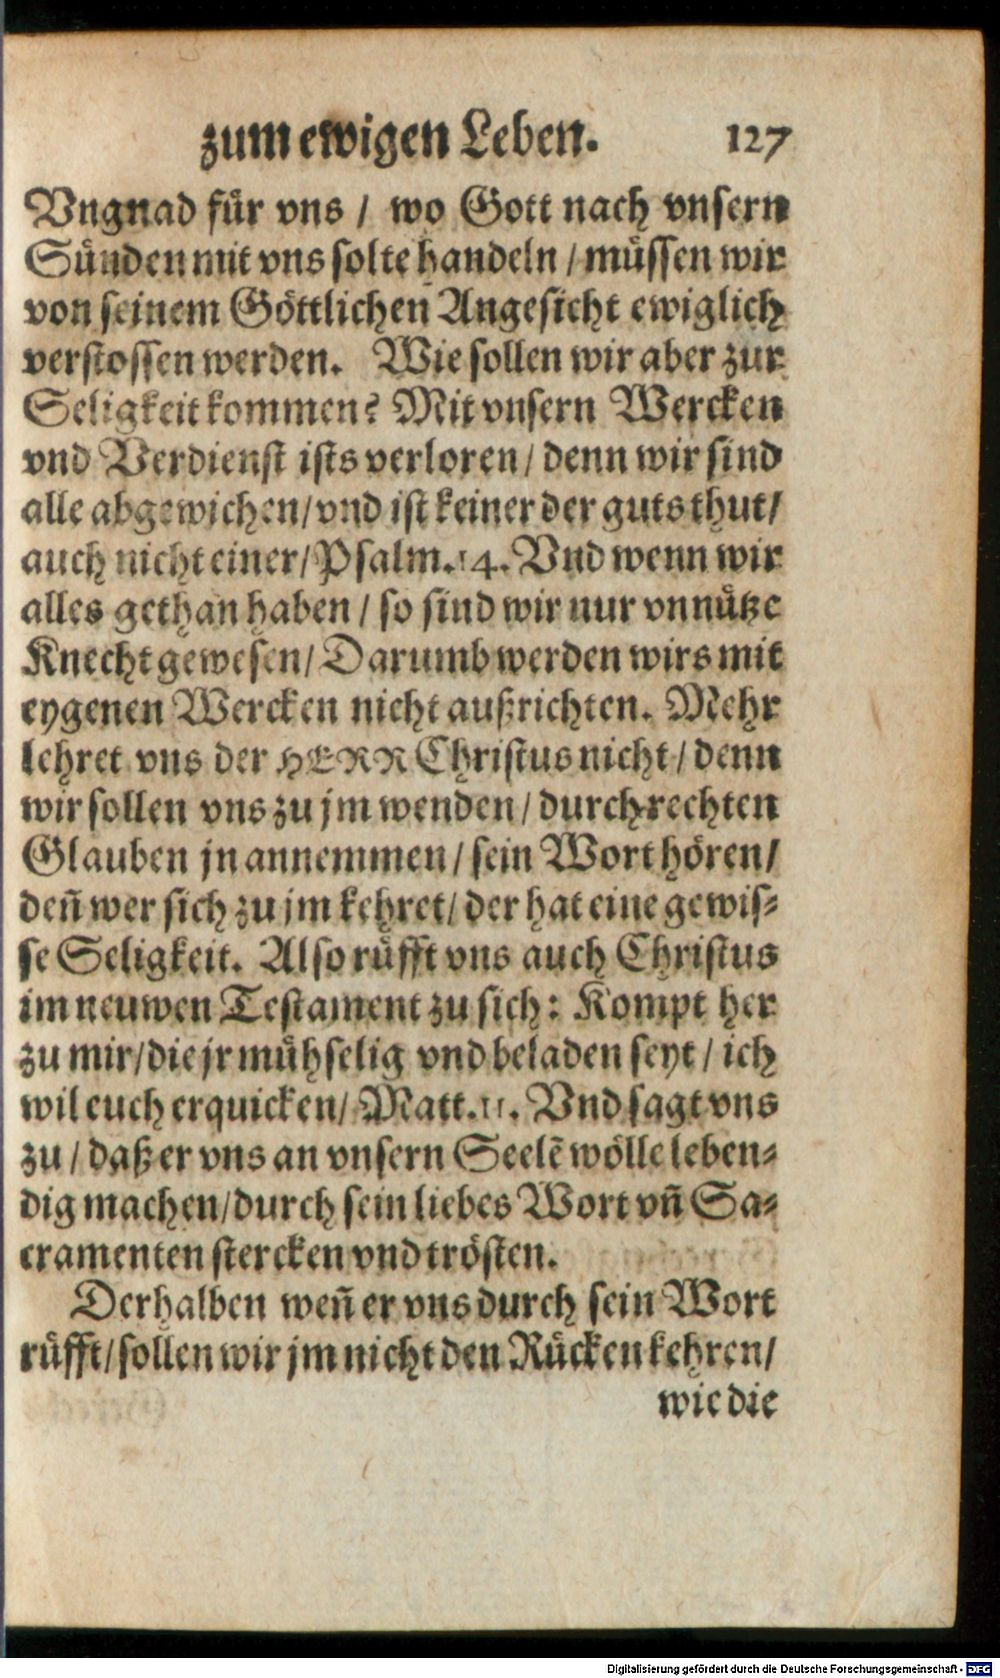 zum ewigen Leben. 127
Vngnad für vns / wo Gott nach vnsern
Sünden mit vns solte handeln / müssen wir
von seinem Göttlichen Angesicht ewiglich
verstossen werden. Wie sollen wir aber zur
Seligkeit kommen? Mit vnsern Wercken
vnd Verdienst ists verloren / denn wir sind
alle abgewichen / vnd ist keiner der guts thut /
auch nicht einer / Psalm. 14. Vnd wenn wir
alles gethan haben / so sind wir nur vnnütze
Knecht gewesen / Darumb werden wirs mit
eygenen Wercken nicht außrichten. Mehr
lehret vns der HERR Christus nicht / denn
wir sollen vns zu jm wenden / durch rechten
Glauben jn annemmen / sein Wort hören /
deñ wer sich zu jm kehret / der hat eine gewis-
se Seligkeit. Also rüfft vns auch Christus
im neuwen Testament zu sich: Kompt her
zu mir / die jr mühselig vnd beladen seyt / ich
wil euch erquicken / Matt. 11. Vnd sagt vns
zu / daß er vns an vnsern Seelẽ wölle leben-
dig machen / durch sein liebes Wort vñ Sa-
cramenten stercken vnd trösten.
Derhalben weñ er vns durch sein Wort
rüfft / sollen wir jm nicht den Rücken kehren /
wie die
Digitalisierung gefördert durch die Deutsche Forschungsgemeinschaft - DFG